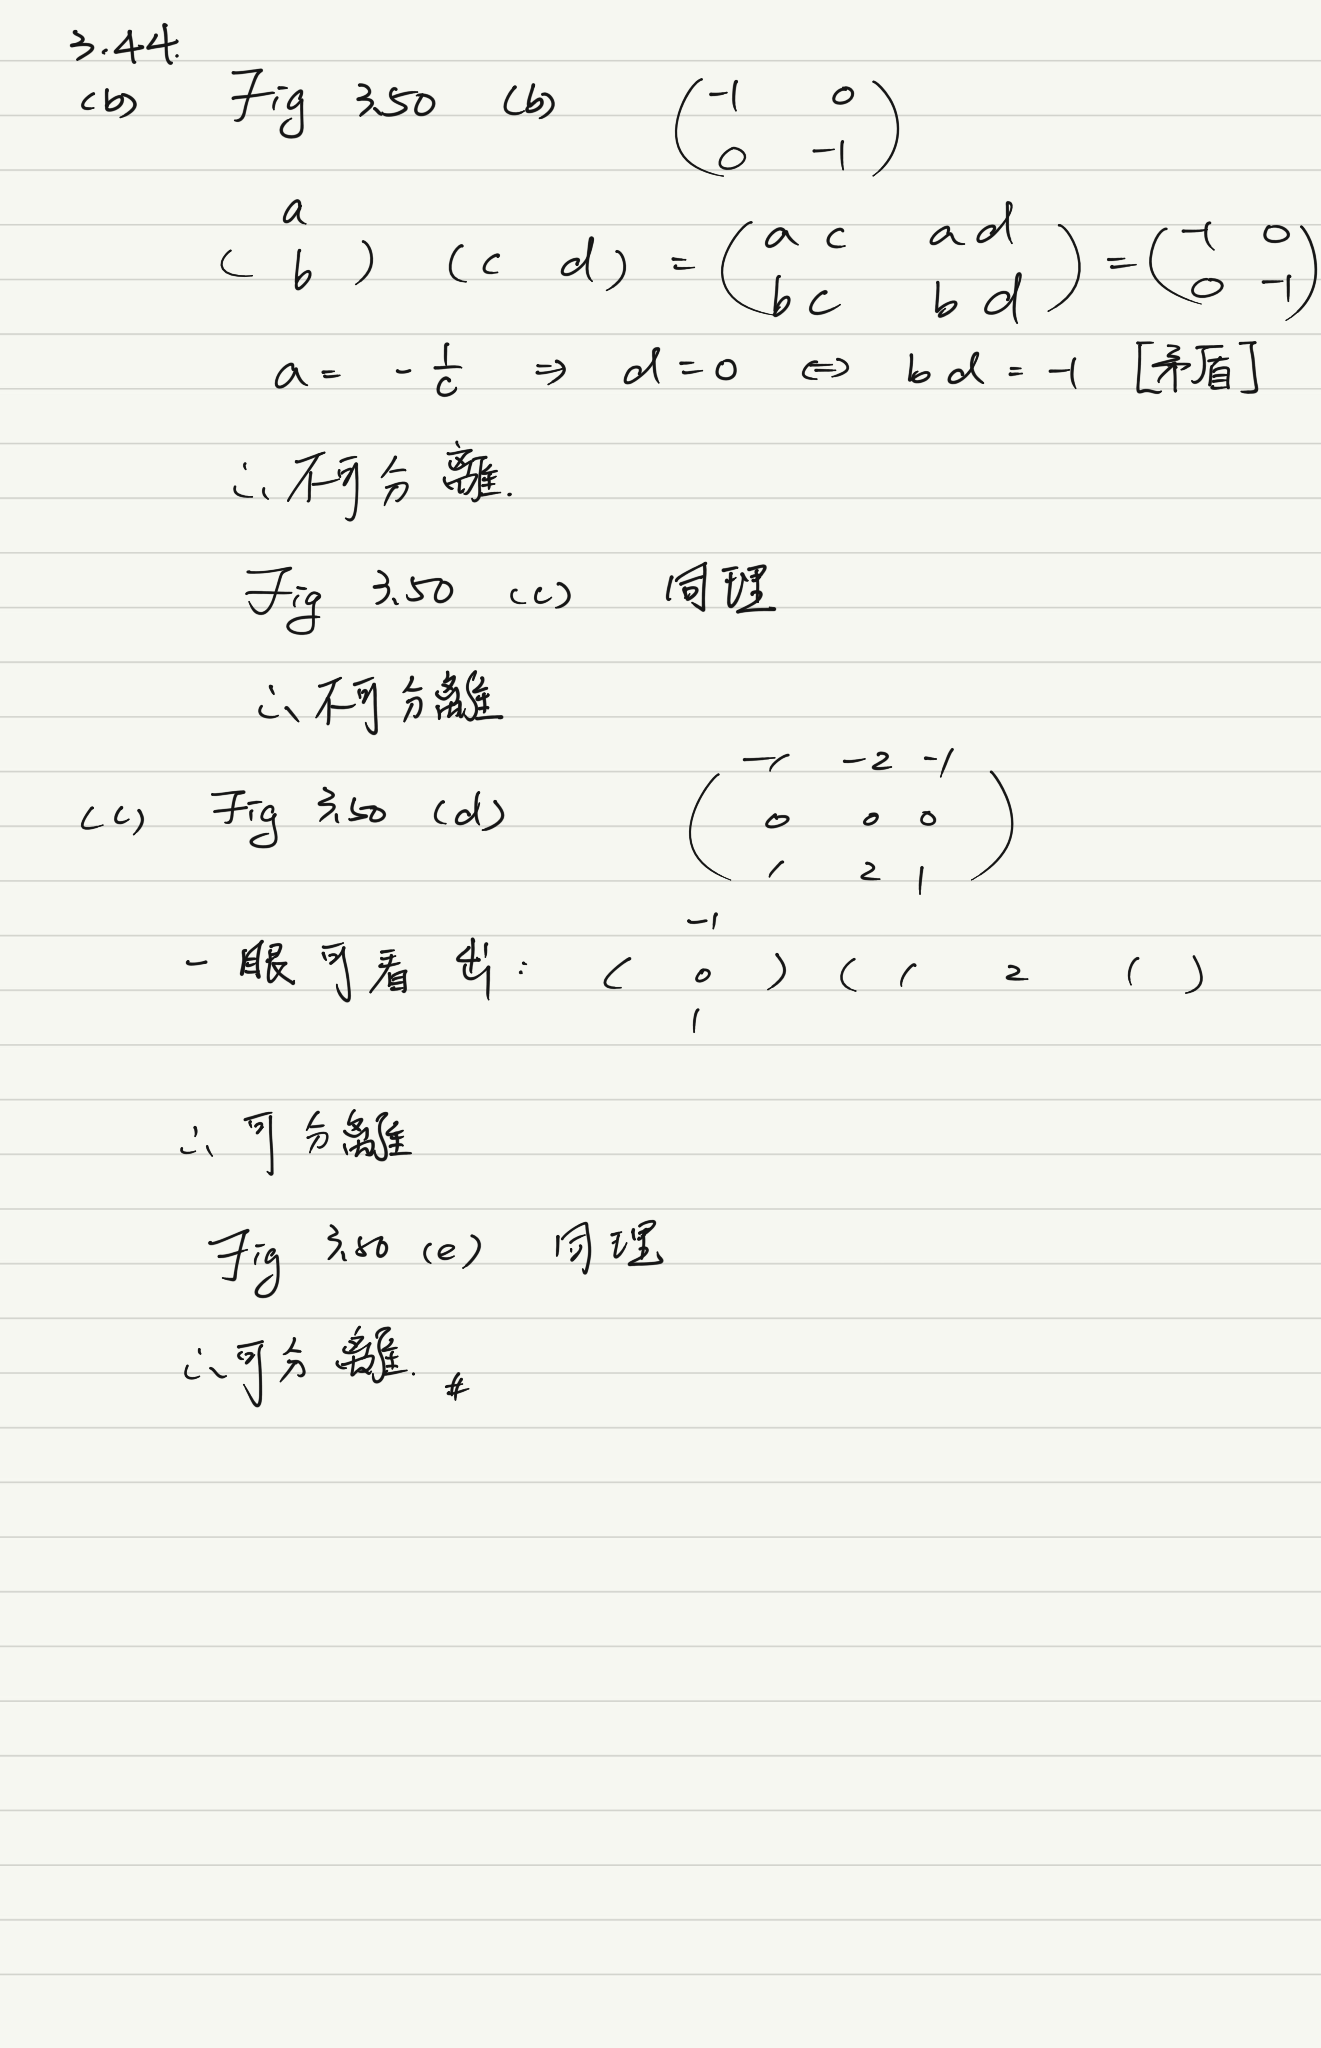 3.44.
(b) Fig 3.50 (b) (-1 0
0 -1)
(a
b) (c d) = (ac ad
bc bd) = (-1 0
0 -1)
a = -1/c ⇒ d = 0 ⇔ bd = -1 [矛盾]
∴ 不可分離.
Fig 3.50 (c) 同理
∴ 不可分離
(c) Fig 3.50 (d) (-1 -2 -1
0 0 0
1 2 1)
一眼可看出: (-1
0
1) (1 2 1)
∴ 可分離
Fig 3.50 (e) 同理
∴ 可分離. #